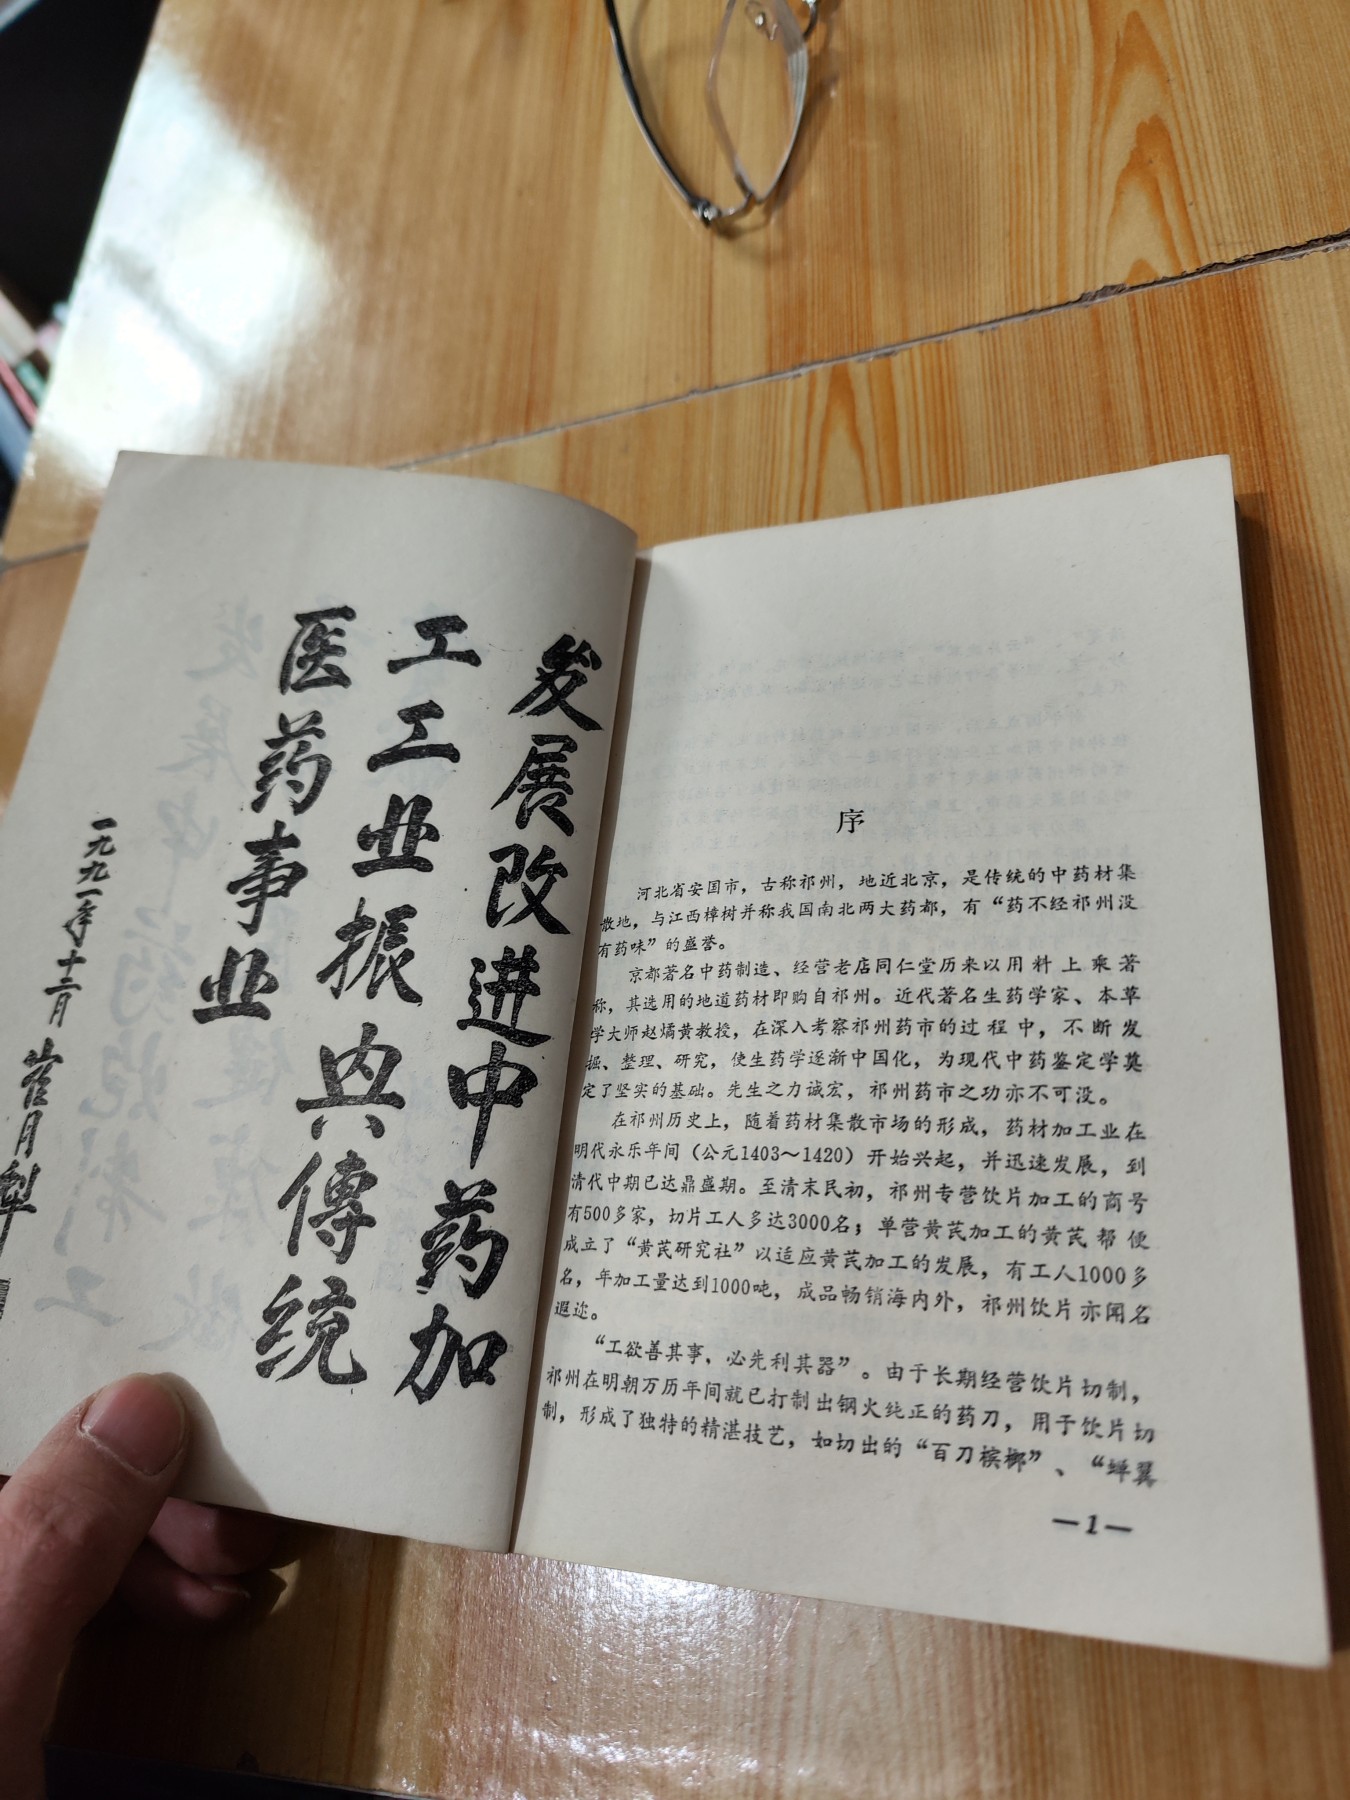 发展改进中药加
工工业振兴傳统
医药事业
一九九一年十二月
崔月犁
序
河北省安国市，古称祁州，地近北京，是传统的中药材集
散地，与江西樟树并称我国南北两大药都，有“药不经祁州没
有药味”的盛誉。
京都著名中药制造、经营老店同仁堂历来以用料上乘著
称，其选用的地道药材即购自祁州。近代著名生药学家、本草
学大师赵燏黄教授，在深入考察祁州药市的过程中，不断发
掘、整理、研究，使生药学逐渐中国化，为现代中药鉴定学奠
定了坚实的基础。先生之力诚宏，祁州药市之功亦不可没。
在祁州历史上，随着药材集散市场的形成，药材加工业在
明代永乐年间（公元1403～1420）开始兴起，并迅速发展，到
清代中期已达鼎盛期。至清末民初，祁州专营饮片加工的商号
有500多家，切片工人多达3000名；单营黄芪加工的黄芪帮便
成立了“黄芪研究社”以适应黄芪加工的发展，有工人1000多
名，年加工量达到1000吨，成品畅销海内外，祁州饮片亦闻名
遐迩。
“工欲善其事，必先利其器”。由于长期经营饮片切制，
祁州在明朝万历年间就已打制出钢火纯正的药刀，用于饮片切
制，形成了独特的精湛技艺，如切出的“百刀槟榔”、“蝉翼
—1—